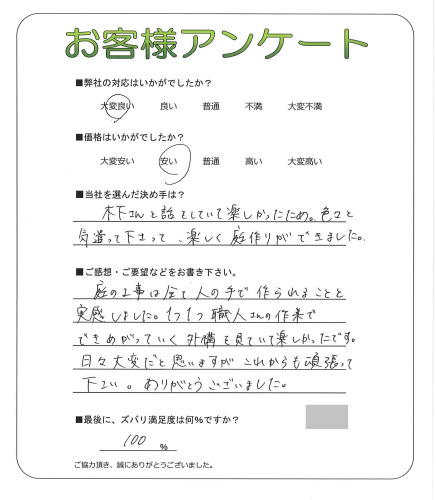 お客様アンケート
■弊社の対応はいかがでしたか？
大変良い 良い 普通 不満 大変不満
■価格はいかがでしたか？
大変安い 安い 普通 高い 大変高い
■当社を選んだ決め手は？
木下さんと話をしていて楽しかったため。色々と
気遣って下さって、楽しく庭作りができました。
■ご感想・ご要望などをお書き下さい。
庭の工事は全て人の手で作られることを
実感しました。1つ1つ職人さんの作業で
できあがっていく外構を見ていて楽しかったです。
日々大変だと思いますがこれからも頑張って
下さい。ありがとうございました。
■最後に、ズバリ満足度は何%ですか？
100 %
ご協力頂き、誠にありがとうございました。